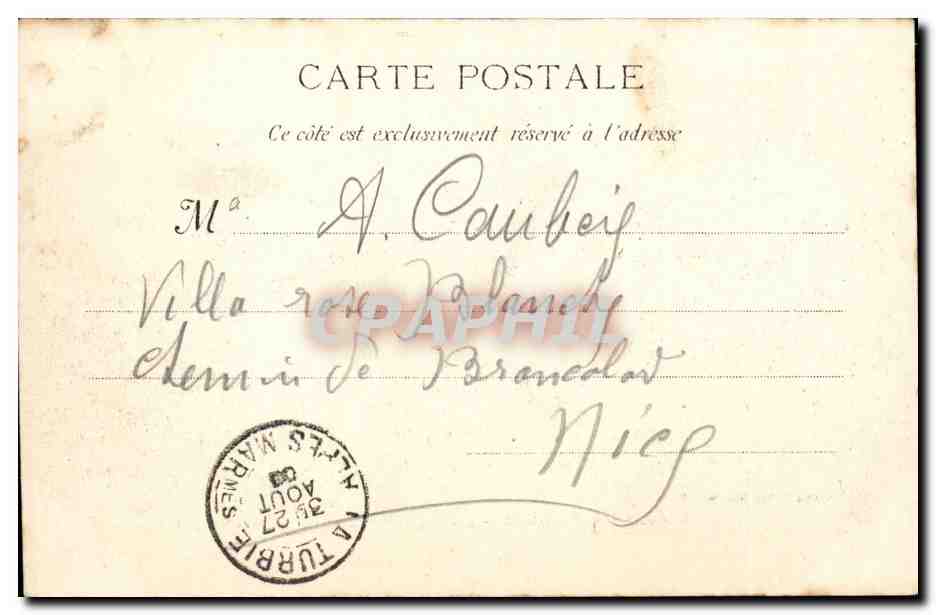 CARTE POSTALE
Ce côté est exclusivement réservé à l'adresse
Mᵃ A. Caubeig
Villa rose Blanche
CPAPHIL
chemin de Brancolar
Nice
LA TURBIE
ALPES MARMES
3E 27
AOUT